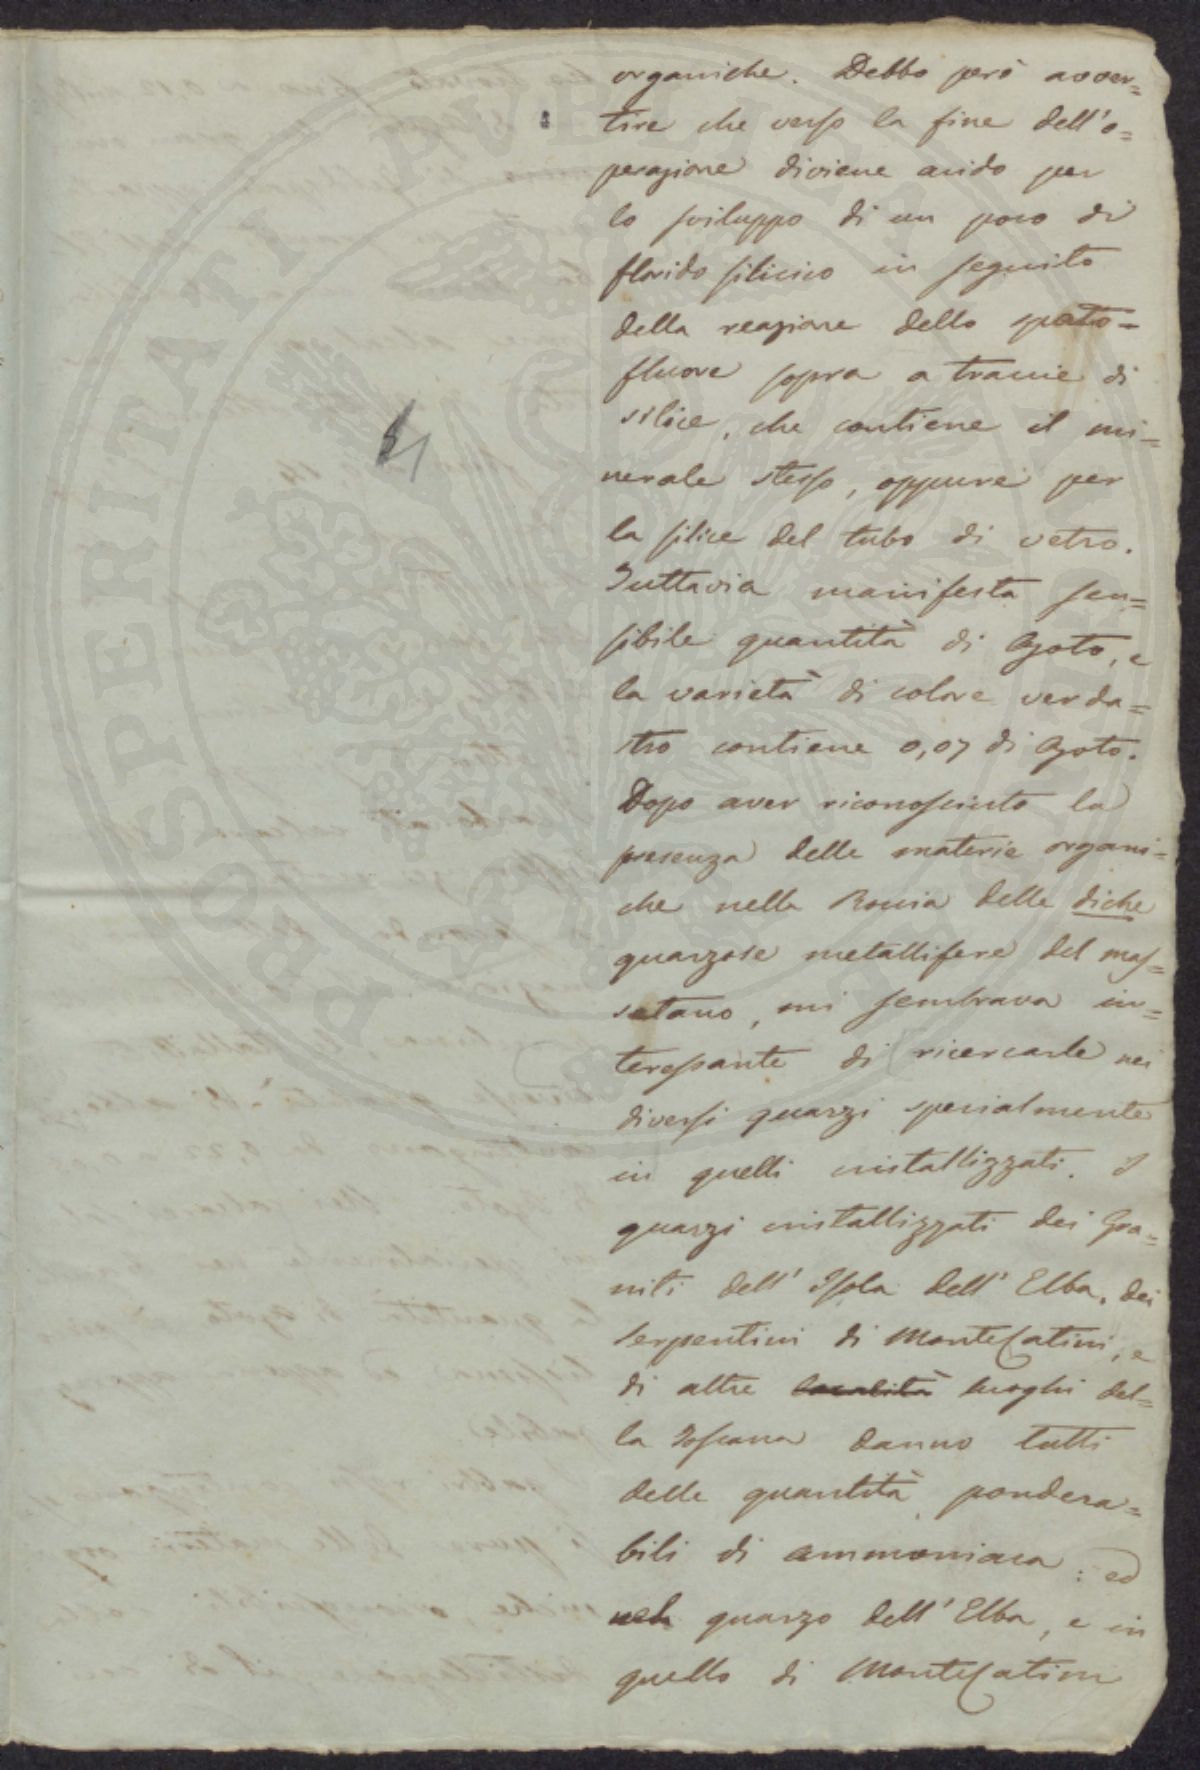 organiche. Debbo però avver=
tire che verso la fine dell'o=
perazione diviene acido per
lo sviluppo di un poco di
florido silicico in seguito
della reazione dello spato=
fluore sopra a traccie di
silice, che contiene il mi=
nerale stesso, oppure per
la silice del tubo di vetro.
Tuttavia manifesta sen=
sibile quantità di Azoto, e
la varietà di colore verda=
stro contiene 0,07 di Azoto.
Dopo aver riconosciuto la
presenza delle materie organi=
che nella Roccia delle diche
quarzose metallifere del mas=
setano, mi sembrava in=
teressante di ricercarle nei
diversi quarzi specialmente
in quelli cristallizzati. I
quarzi cristallizzati dei Gra=
niti dell'Isola dell'Elba, dei
serpentini di MonteCatini, e
di altre località luoghi del=
la Toscana danno tutti
delle quantità pondera=
bili di ammoniaca: ed
nel quarzo dell'Elba, e in
quello di MonteCatini
PROSPERITATI PVBLICAE